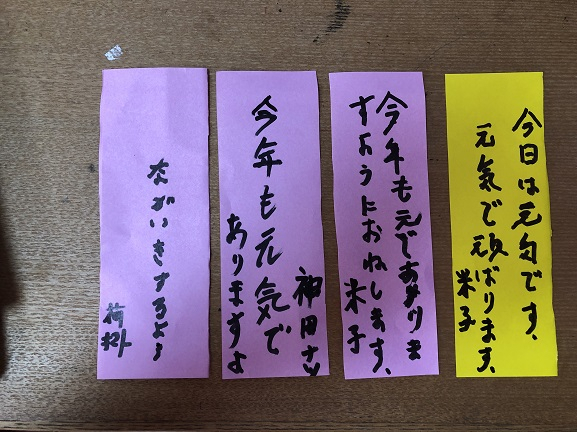 今日は元気です、
元気で頑ばります、
米子
今年も元であありま
すようにおねします、
米子
今年も元気で
ありますよ
神田
ながいきするよう